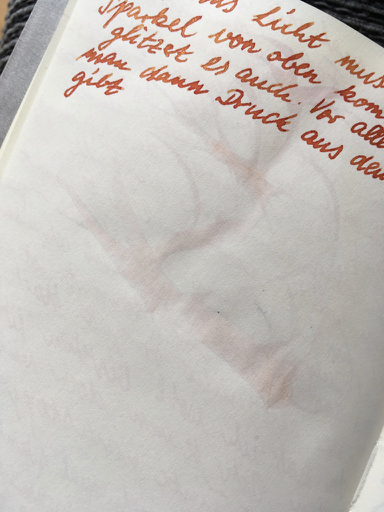 das Licht muss
Sparkel von oben kom
glitzet es auch. Vor alle
man dann Druck aus den
gibt